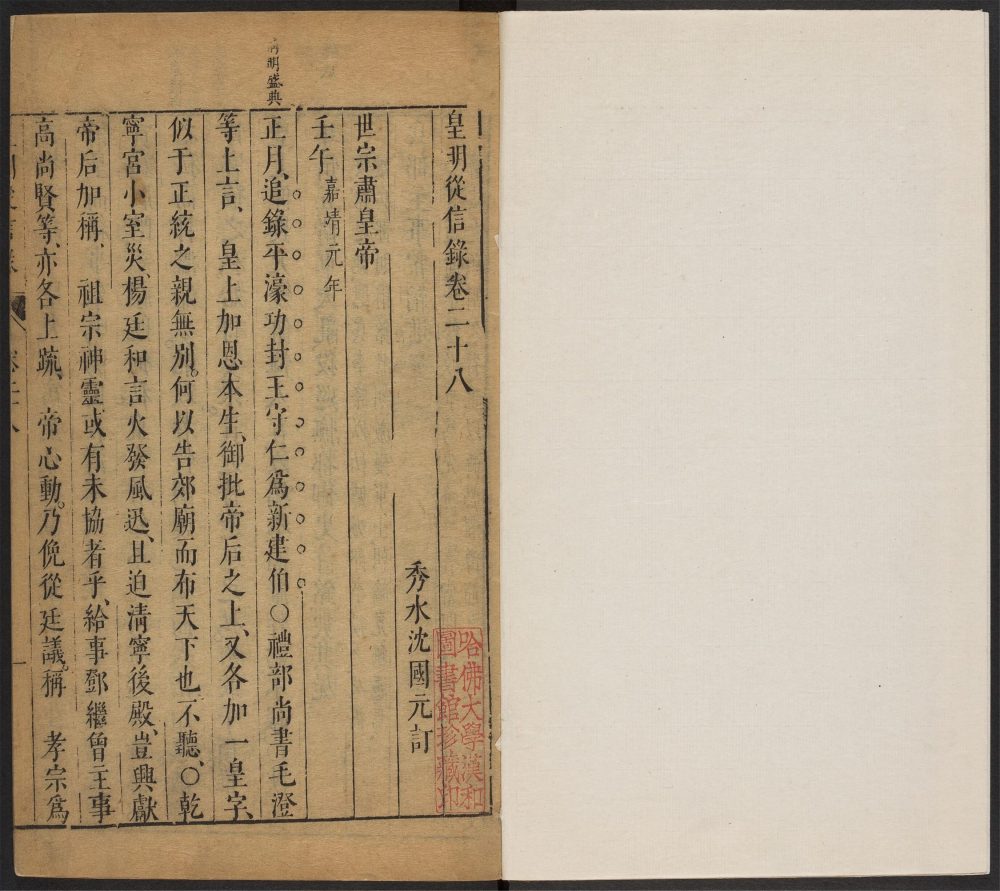 皇明從信錄卷二十八
秀水沈國元訂
哈佛大學漢和
圖書館珍藏印
世宗肅皇帝
壬午嘉靖元年
明盛典
正月、追錄平濠功封王守仁為新建伯○禮部尚書毛澄
等上言、皇上加恩本生、御批帝后之上、又各加一皇字、
似于正統之親無別。何以告郊廟而布天下也不聽、○乾
寧宮小室災、楊廷和言火發風迅、且迫清寧後殿、豈興獻
帝后加稱、祖宗神靈或有未協者乎、給事鄧繼曾主事
高尚賢等、亦各上疏、帝心動。乃俛從廷議。稱孝宗為